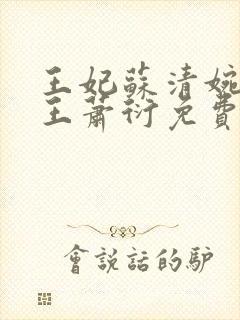 王妃蘇清婉
王蕭衍免費
會說話的驴